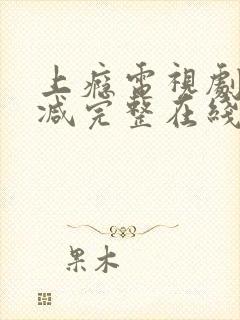 上癮電視劇
减完整在綫
果木